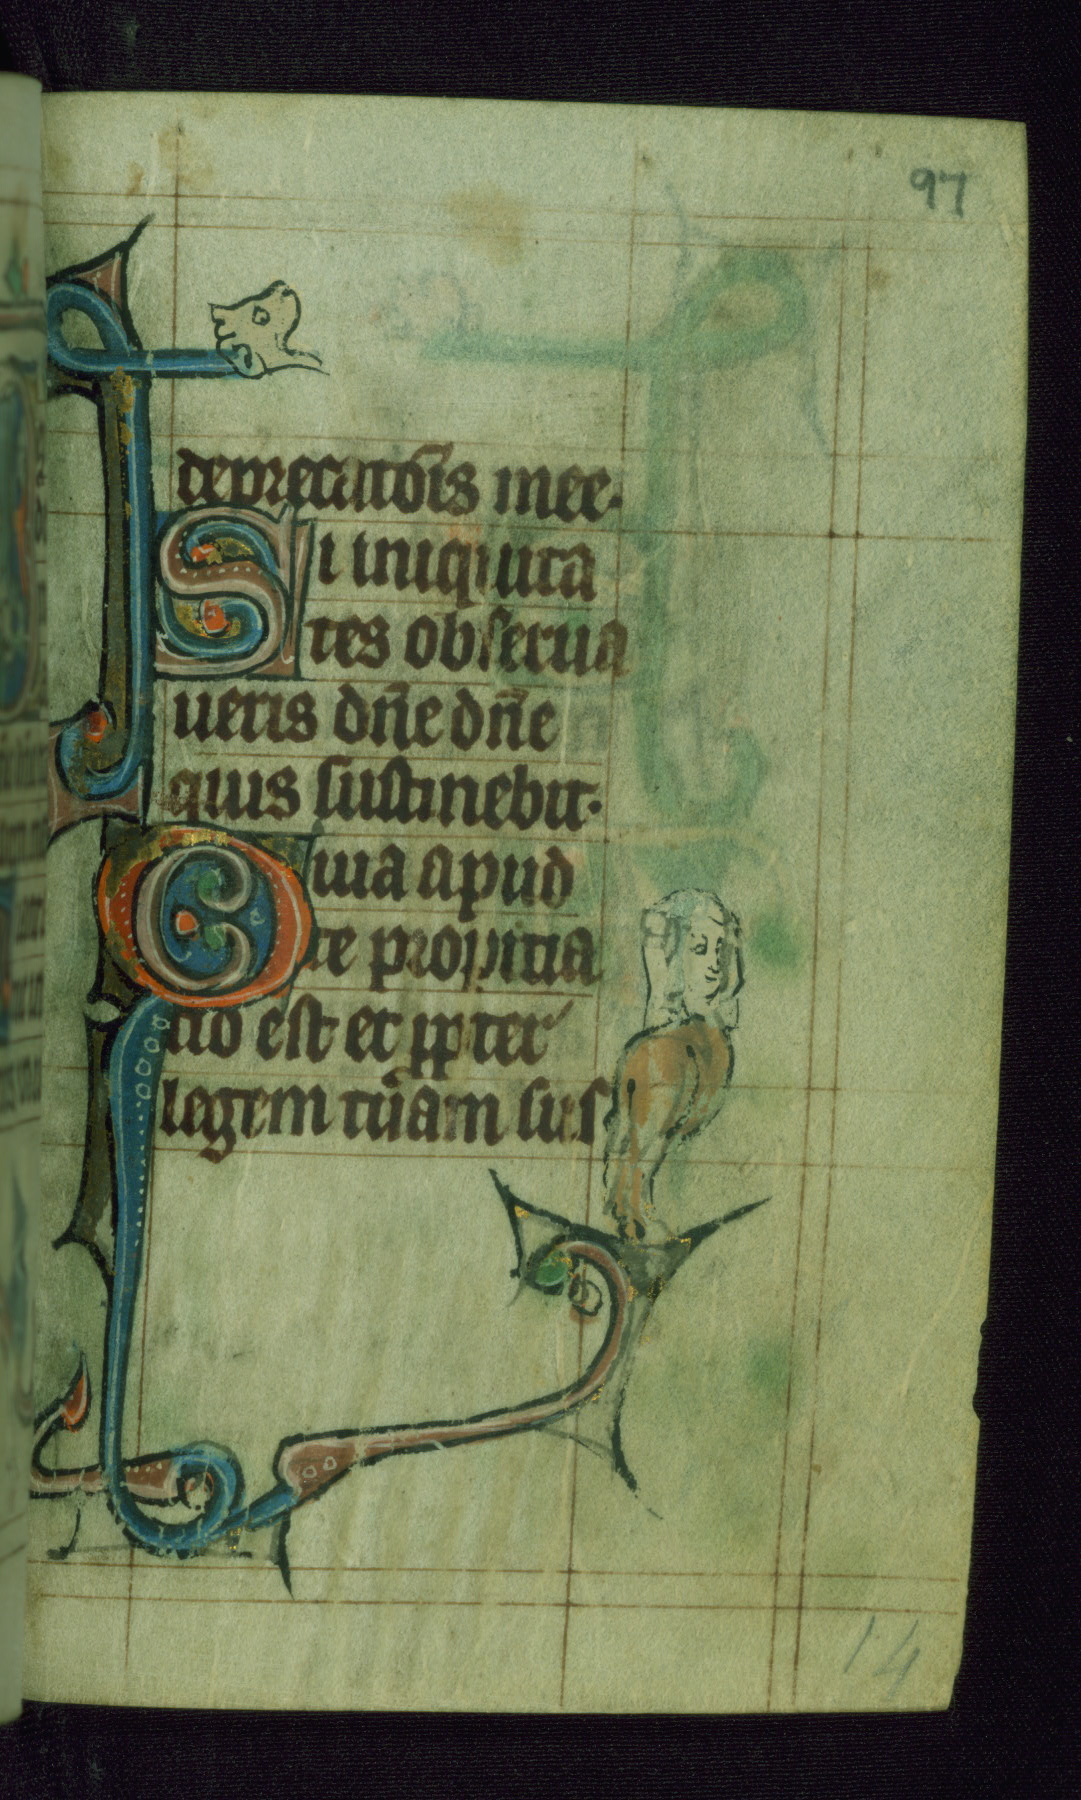 97
deprecatiōis mee.
Si iniquita
tes obserua
ueris dñe dñe
quis sustinebit.
Quia apud
te propitia
tio est et ꝓpter
legem tuam sus
14